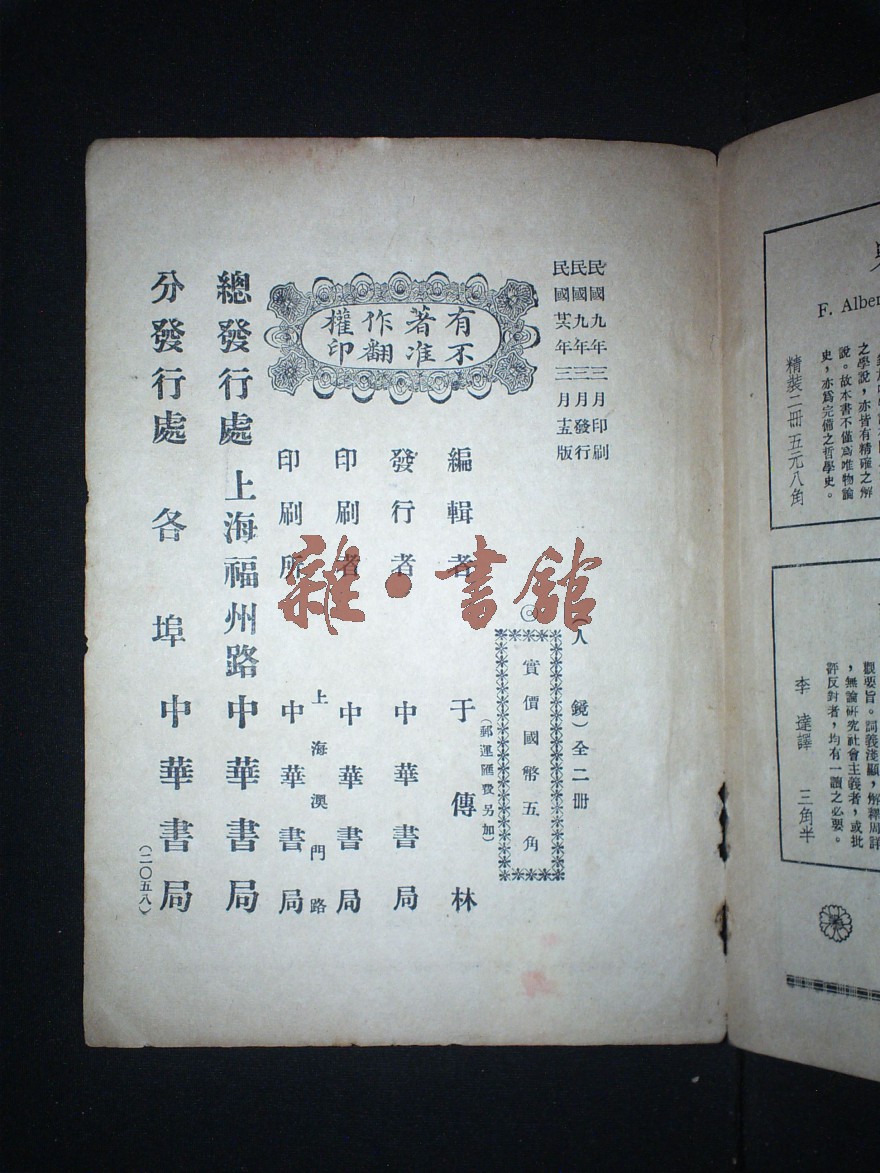 民國九年三月印刷
民國九年三月發行
民國廿六年三月十五版
(人鏡)全二册
◎
實價國幣五角
(郵運匯費另加)
有著作權
不准翻印
編輯者 于傳林
發行者 中華書局
印刷者 中華書局
上海澳門路
印刷所 中華書局
總發行處 上海福州路中華書局
分發行處 各埠中華書局
(二〇五八)
雜·書館
F. Alber
之學說,亦皆有精確之解
說。故本書不僅爲唯物論
史,亦爲完備之哲學史。
精裝二册五元八角
觀要旨。詞義淺顯,解釋周詳
,無論研究社會主義者,或批
評反對者,均有一讀之必要。
李達譯 三角半